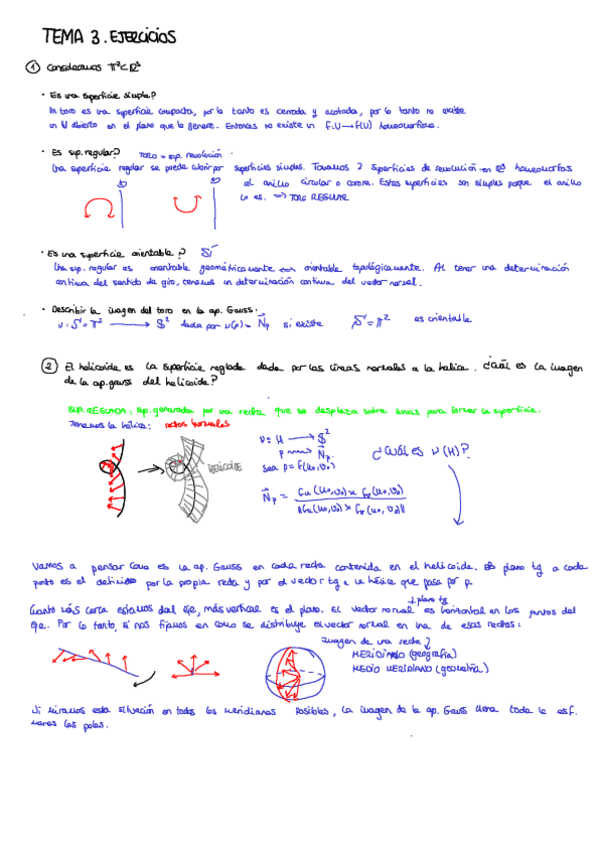 TEMA 3. EJERCICIOS
① Consideramos 𝕋²⊂ℝ³
• Es una superficie simple?
Un toro es una superficie compacta, por lo tanto es cerrada y acotada, por lo tanto no existe
un U abierto en el plano que lo genere. Entonces no existe un f: U→f(U) homeomorfismo.
• Es sup. regular? TORO = sup. revolución
Una superficie regular se puede cubrir por superficies simples. Tomamos 2 superficies de revolución en homeomorfas
al anillo circular o corona. Estas superficies son simples porque el anillo
lo es. ⟹ TORO REGULAR
• Es una superficie orientable? SÍ
Una sup. regular es orientable geométricamente ⟷ orientable topológicamente. Al tener una determinación
continua del sentido de giro, tenemos un determinación continua del vector normal.
• Describir la imagen del toro en la ap. Gauss.
ν: S = 𝕋² ⟶ 𝕊² dada por ν(p) = N⃗p si existe S = 𝕋² es orientable
② El helicoide es la superficie reglada dada por las líneas normales a la hélice. ¿Cuál es la imagen
de la ap. gauss del helicoide?
SUP. REGLADA: sup. generada por una recta que se desplaza sobre curvas para formar la superficie.
Tenemos la hélice: rectas normales
HELICOIDE
ν: H ⟶ 𝕊²
p ⟼ N⃗p
sea p = f(u₀,v₀)
N⃗p = fu(u₀,v₀) × fv(u₀,v₀) / ‖fu(u₀,v₀) × fv(u₀,v₀)‖
¿CUÁL ES ν(H)?
Vamos a pensar como es la ap. Gauss en cada recta contenida en el helicoide. El plano tg a cada
punto es el definido por la propia recta y por el vector tg a la hélice que pasa por p.
↓ plano tg
Cuanto más cerca estamos del eje, más vertical es el plano. El vector normal es horizontal en los puntos del
eje. Por lo tanto, si nos fijamos en como se distribuye el vector normal en una de esas rectas:
Imagen de una recta
MERIDIANO (geografía)
MEDIO MERIDIANO (geometría)
Si miramos esta situación en todos los meridianos posibles, la imagen de la ap. Gauss llena toda la esf.
menos los polos.